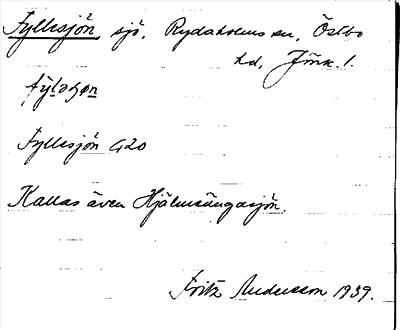 Fyllesjön, sjö, Rydaholms sn, Östbo
hd, Jönk. l.
Fyllesjön G20
Kallas även Hjälmsängasjön.
Fritz Andersson 1939.